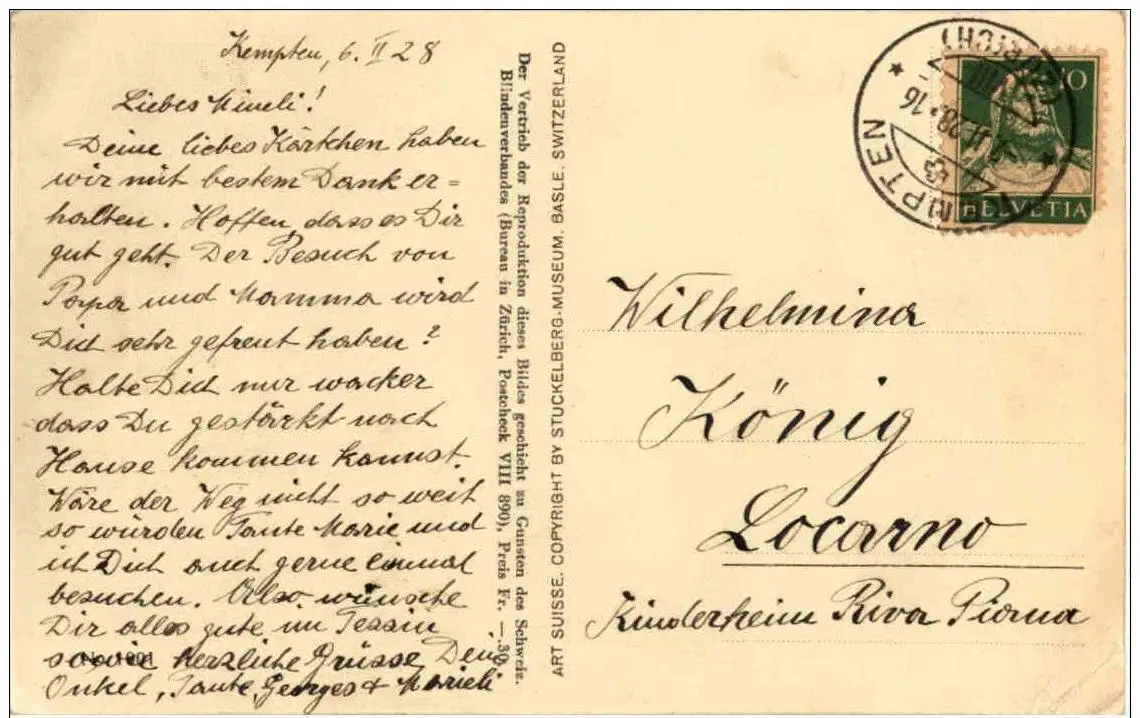 Kempten, 6. II 28
Liebes Mineli!
Deine liebes Kärtchen haben
wir mit bestem Dank er=
halten. Hoffen, dass es Dir
gut geht. Der Besuch von
Papa und Mamma wird
Dich sehr gefreut haben?
Halte Dich nur wacker
dass Du gestärkt nach
Hause kommen kannst.
Wäre der Weg nicht so weit
so würden Tante Marie und
ich Dich auch gerne einmal
besuchen. Also wünsche
Dir alles gute im Tessin
sowie herzliche Grüsse, Dein
Onkel, Tante, Georges & Marieli
Der Vertrieb der Reproduktion dieses Bildes geschieht zu Gunsten des Schweiz.
Blindenverbandes (Bureau in Zürich, Postcheck VIII 890), Preis Fr. —.30.
ART SUISSE. COPYRIGHT BY STUCKELBERG-MUSEUM, BASLE, SWITZERLAND
KEMPTEN
(ZÜRICH)
10
HELVETIA
Wilhelmina
König
Locarno
Kinderheim Riva Piana